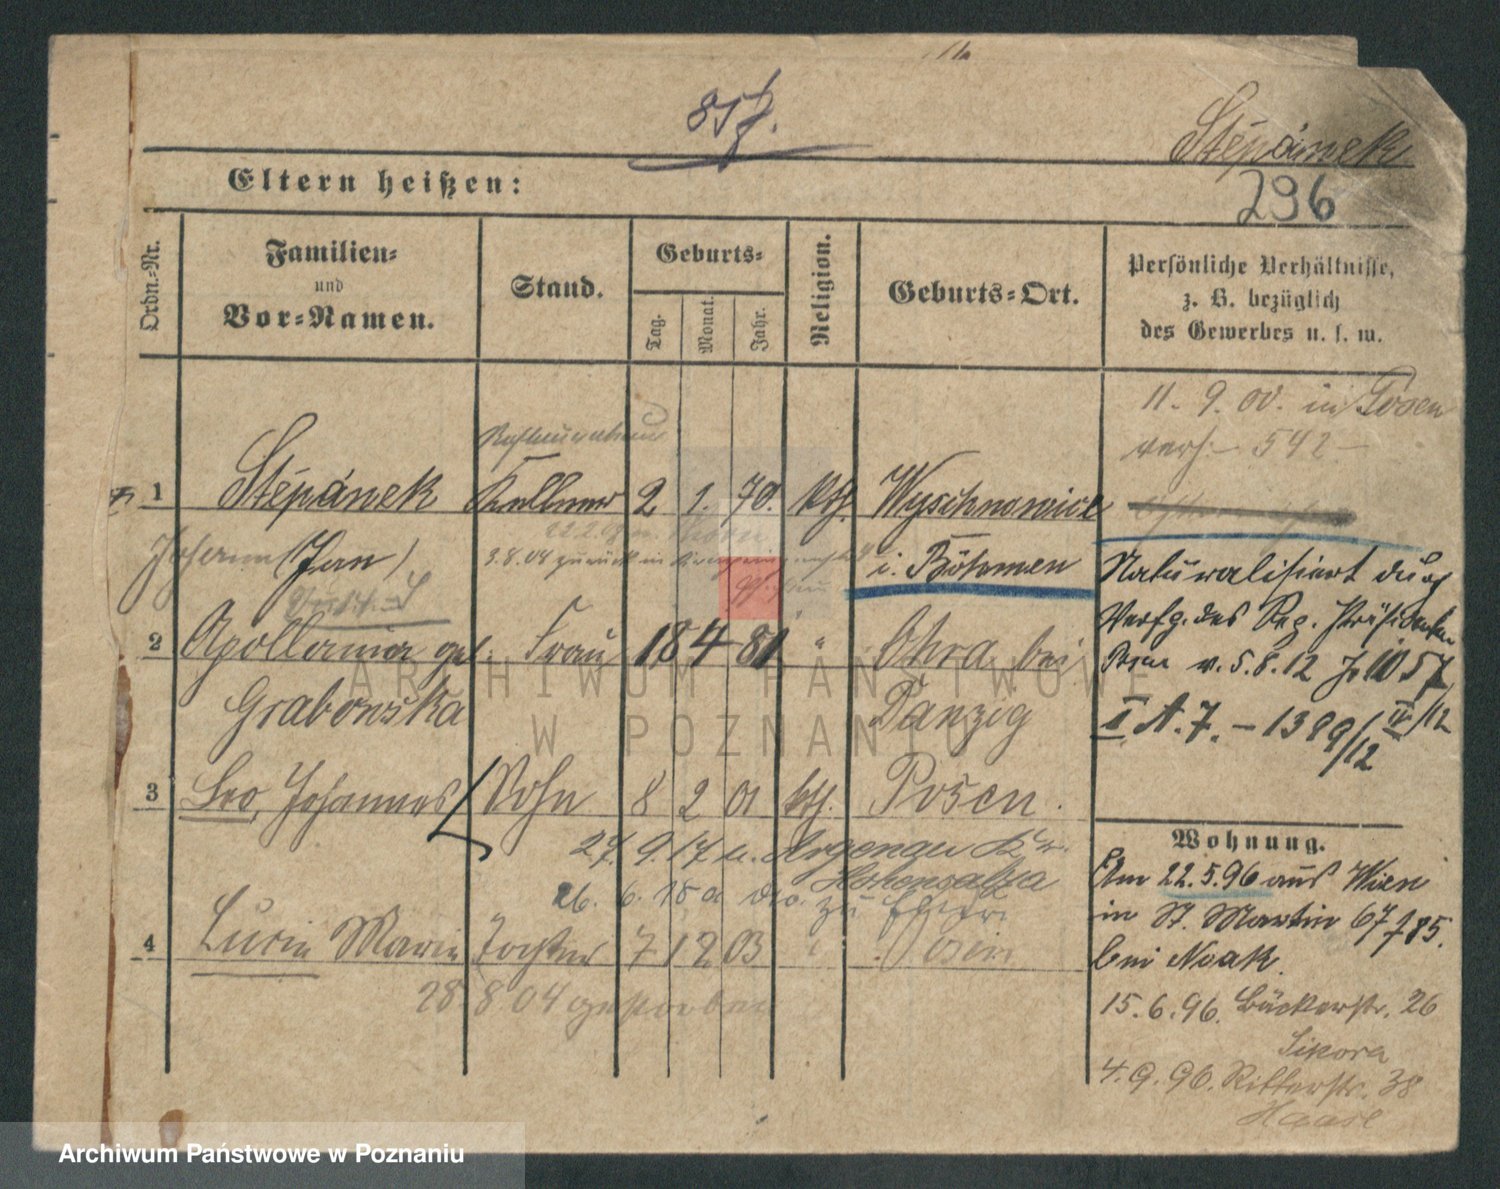 Stépánek
296
Eltern heißen:
Ordn.-Nr.
Familien-
und
Vor-Namen.
Stand.
Geburts-
Tag.
Monat.
Jahr.
Religion.
Geburts-Ort.
Persönliche Verhältnisse,
z. B. bezüglich
des Gewerbes u. s. w.
11. 9. 00. in Posen
verh. 542
1 Stépánek Kellner 2 1. 70. kth. Wyschnowice
Johann (Jan)
i. Böhmen
3.8.04 zurück in
Naturalisiert durch
Verfg. des Reg. Präsidenten
Posen v. 5.8.12 J. 1057/12
I A. 7. - 1399/12
2 Apollonia geb. Frau 18 4 81 " Ohra bei
Grabowska Danzig
3 Leo, Johannes Sohn 8 2 01 kth. Posen.
27. 9. 17 n. Argenau Kr.
Hohensalza
26. 6. 18 a do. zu Eltern
4 Lucie Marie Tochter 7 12 03 Posen
28. 8 04 gestorben
Wohnung.
Am 22.5.96 aus Wien
in St. Martin 67
bei Noak.
15. 6. 96. Bäckerstr. 26
Sikora
4. 9. 96. Ritterstr. 38
Haase
ARCHIWUM PAŃSTWOWE
W POZNANIU
Archiwum Państwowe w Poznaniu